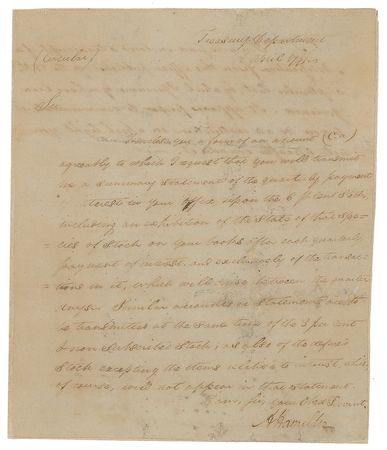 Treasury Department
(Circular) April
Sir
I transmit you a form of an account (C.a)
agreeably to which I request that you will transmit
me a summary statement of the quarterly payment
Interest in your Office, upon the 6 p Cent Stock,
including an exhibition of the State of that Spe-
cies of Stock on your books after each quarterly
payment of interest, and exclusively of the transac-
tions in it, which will arise between the quarter
days. Similar accounts or Statements are to
be transmitted at the same time of the 3 per cent
& non Subscribed Stock; as also of the deferred
Stock excepting the Items relative to interest which,
of course, will not appear in that statement.
I am, Sir, your Obed Servant.
A Hamilton